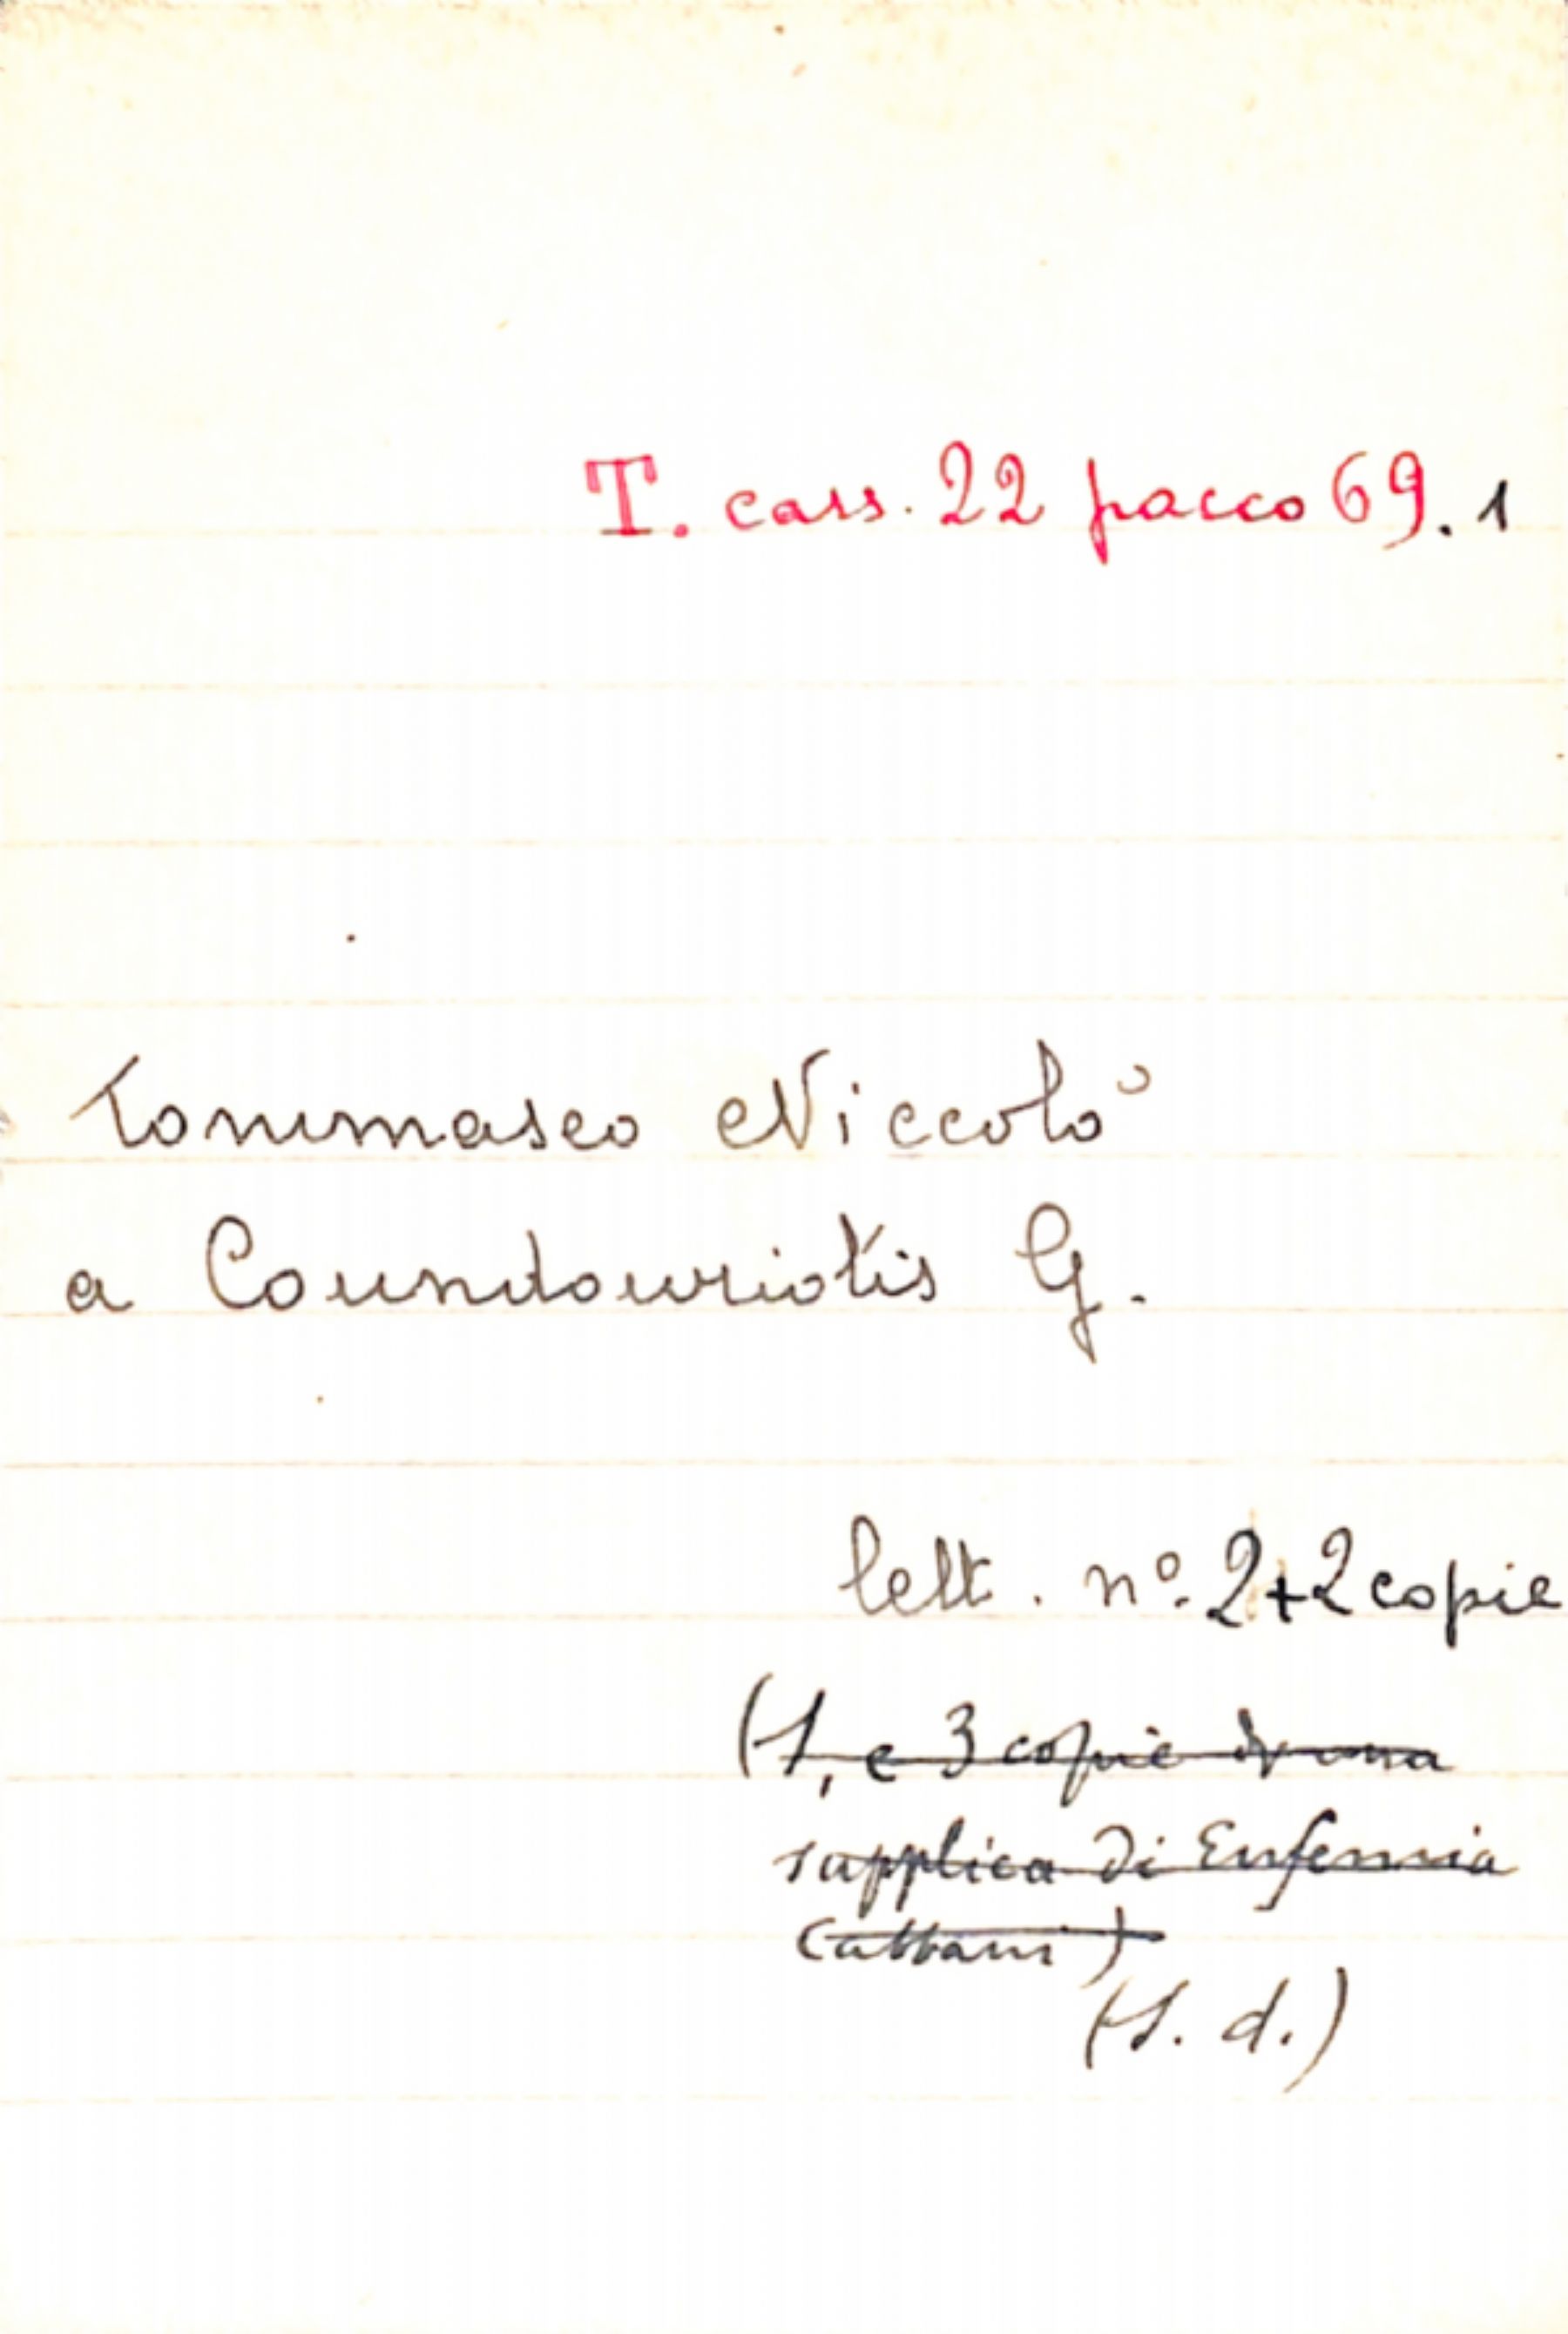 T. cass. 22 pacco 69. 1
Tommaseo Niccolò
a Coundouriotis G.
lett. nº. 2+2 copie
(1, e 3 copie di una
supplica di Eufemia
Cattani)
(s. d.)